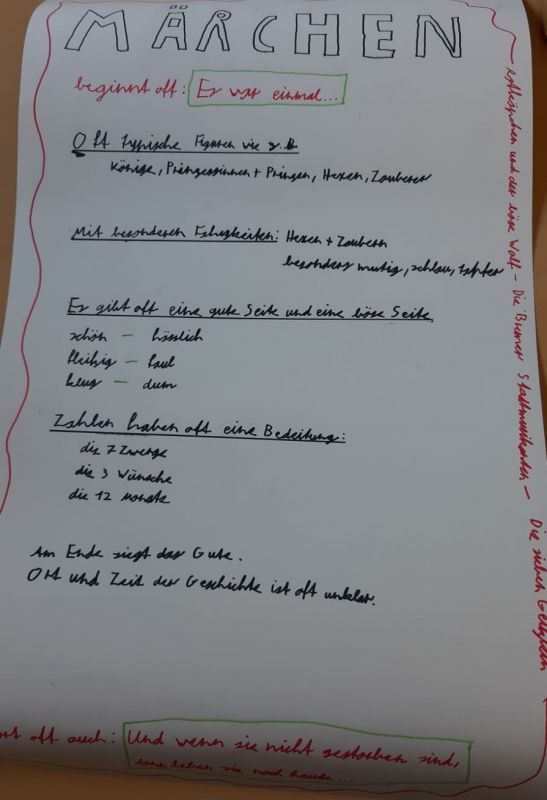 MÄRCHEN
beginnt oft: Es war einmal...
Oft typische Figuren wie z.B.
Könige, Prinzessinnen + Prinzen, Hexen, Zauberer
Mit besonderen Fähigkeiten: Hexen + Zaubern
besonders mutig, schlau, tapfer
Es gibt oft eine gute Seite und eine böse Seite
schön - hässlich
fleißig - faul
klug - dum
Zahlen haben oft eine Bedeitung:
die 7 Zwerge
die 3 Wünsche
die 12 Monate
Am Ende siegt das Gute.
Ort und Zeit der Geschichte ist oft unklar.
oft auch: Und wenn sie nicht gestorben sind,
dann leben sie noch heute...
und der böse Wolf - Die Bremer Stadtmusikanten - Die sieben Geißlein